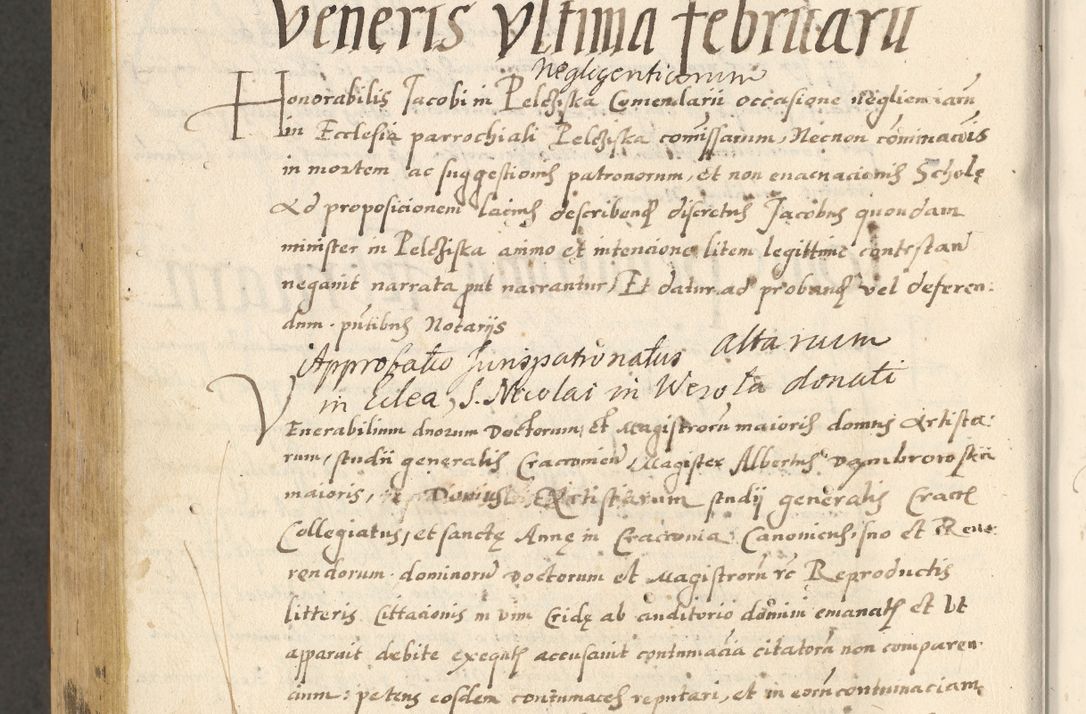 Veneris Vltima februarii
Negligenticorum
Honorabilis Jacobi in Pelcziska Comendarii occasione negligenciarũ
in Ecclesia parrochiali Pelcziska com̃issarum, Necnon com̃inac̃onis
in mortem ac suggestionis patronorum, et non euacuacionis Scholę
Ad proposicionem lacius describend̃ discretus Jacobus quondam
minister in Pelcziska animo et intencione litem legittime contestand̃
negauit narrata put narrantur, Et datur ad proband̃ vel deferen:
dum. pñtibus Notarijs
Approbatio Jurispatronatus altarium
in Eclea S. Nicolai in donati
VEnerabilium dnorum Doctorum, et Magistrorũ maioris domus Artista:
rum, studii generalis Cracouien̄ Magister Albertus Dambrowskii
maioris, Artistarum studij generalis Cracoũ
Collegiatus, et sanctę Annę in Cracouia Canonicus, suo et Reue:
rendorum dominorũ Doctorum et Magistrorũ rc̃ Reproductis
litteris Cittacionis in vim Cridę ab auditorio domini emanatis et Vt
apparuit debite exequtis accusauit contumaciã citatorũ non comparen
cium: petens eosdem contumaces reputari, et in eorũ contumaciam